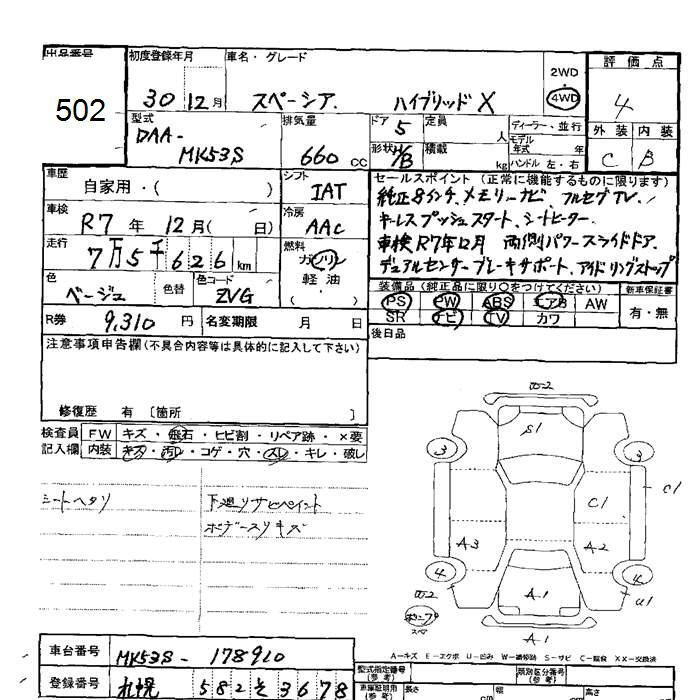 出品番号
502
初度登録年月
30 12月
車名・グレード
スペーシア. ハイブリッド X
2WD
4WD
評価点
4
型式
DAA-
MK53S
排気量
660 CC
ドア 5
形状 H/B
定員 人
積載 kg
ディーラー・並行
モデル年式 年
ハンドル 左・右
外装 内装
C B
車歴
自家用・( )
シフト
IAT
車検
R7年 12月( 日)
冷房
AAC
走行
7万5千626km
燃料
ガソリン
軽油
( )
色
ベージュ
色替
色コード
ZVG
セールスポイント(正常に機能するものに限ります)
純正8インチ.メモリーナビ フルセグTV.
キーレスプッシュスタート、シートヒーター.
車検R7年12月 両側パワースライドドア.
デュアルセンサーブレーキサポート、アイドリングストップ
装備品(純正品に限り○をつけてください)
PS PW ABS エアB AW
SR ナビ TV カワ
新車保証書
有・無
R券 9,310 円
名変期限 月 日
後日品
注意事項申告欄(不具合内容等は具体的に記入して下さい)
修復歴 有 〔箇所 〕
検査員記入欄
FW キズ・飛石・ヒビ割・リペア跡・×要
内装 キズ・汚れ・コゲ・穴・スレ・キレ・破レ
シートヘタリ
下廻りサビペイント
ボデースリキズ
S1
3
3
C1
C1
A3
A2
4
4
A1
U1
A1
スペア
A-キズ E-エクボ U-凹み W-補修跡 S-サビ C-腐食 XX-交換済
車台番号
MK53S-178910
登録番号
札幌 582 そ 3678
型式指定番号
(参考)
類別区分番号
(参考)
長さ
cm
幅
cm
高さ